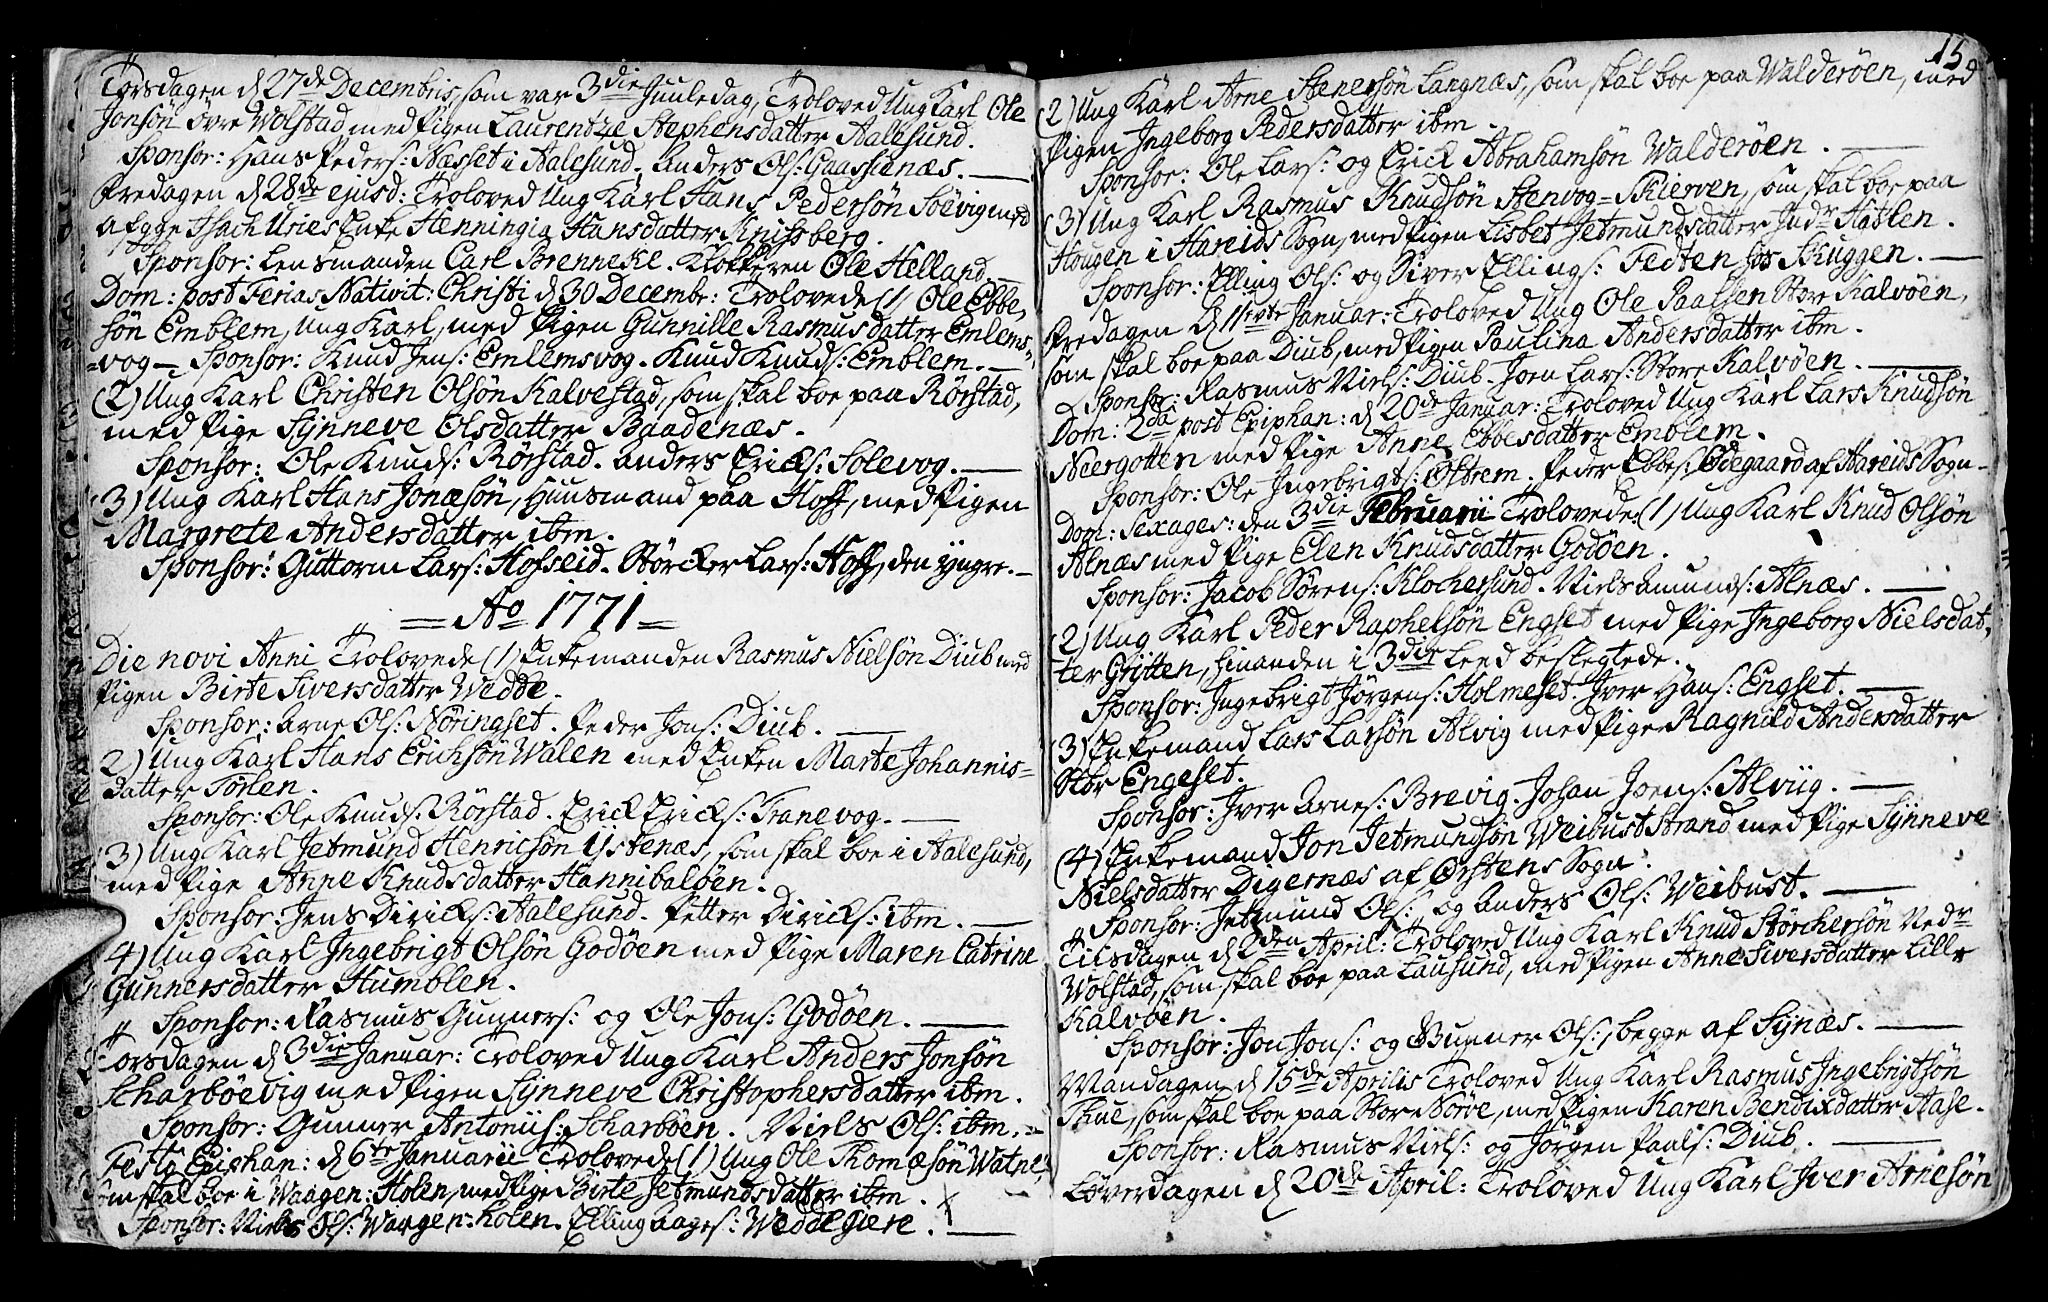 Torsdagen d 27de Decembris, som var 3die Juuledag, Troloved Ung Karl Ole
Jonsøn øvre Wolstad med Pigen Laurentze Stephensdatter Aalesund.
Sponsor: Hans Peders: Næsset i Aalesund. Anders Ols: Gaassenæs.
Fredagen d 28de ejusd: Troloved Ung Karl Hans Pedersøn Søevig med
afgge Isach Uries Enke Henningia Hansdatter Knifsberg.
Sponsor: Lensmanden Carl Brennekl. Klokkeren Ole Helland.
Dom: post Ferias Nativit: Christi d 30 Decembr: Trolovede (1) Ole Ebbe,
søn Emblem, Ung Karl, med Pigen Gunnille Rasmusdatter Emlems=
=vog — Sponsor: Knud Jens: Emlemsvog. Knud Knuds: Emblem.
(2) Ung Karl Christen Olsøn Kalvestad, som skal boe paa Rørstad,
med Pige Synneve Olsdatter Baadenæs.
Sponsor: Ole Knuds: Rørstad. Anders Erichs: Solevog.
3) Ung Karl Hans Jonæsøn, Huusmand paa Hoff, med Pigen
Margrete Andersdatter ibm.
Sponsor: Guttorm Lars: Hofseid. Størcker Lars: Hoff, den yngre.
= Ao 1771 =
Die novi Anni Trolovede (1) Enkemanden Rasmus Nielsøn Diub med
Pigen Birte Siversdatter Wedde.
Sponsor: Arne Ols: Nøringset. Peder Jons: Diub.
2) Ung Karl Hans Erichsøn Walen med Enken Marte Johannis=
datter Tørlen.
Sponsor: Ole Knuds: Rørstad. Erich Erichs: Tranevog.
3) Ung Karl Jetmund Henricsøn Ystenæs, som skal boe i Aalesund,
med Pige Anne Knudsdatter Hannibaløen.
Sponsor: Jens Dirichs: Aalesund. Petter Dirichs: ibm.
4) Ung Karl Ingebrigt Olsøn Godøen med Pige Maren Catrine
Gunnersdatter Humblen.
Sponsor: Rasmus Gunners: og Ole Jons: Godøen.
Torsdagen d 3die Januar: Troloved Ung Karl Anders Jonsøn
Scharbøevig med Pigen Synneve Christophersdatter ibm.
Sponsor: Gunner Antonii: Scharbøen. Niels Ols: ibm.
Festo Epiphan: d 6te Januarii Trolovede (1) Ung Ole Thomæsøn Watne,
som skal boe i Waagen: Holen, med Pige Birte Jetmundsdatter ibm.
Sponsor: Niels Ols: Waagen: Holen. Elling Aages: Weddegiere.
15
(2) Ung Karl Arne Stenersøn Langnæs, som skal boe paa Walderøen, med
Pigen Ingeborg Pedersdatter ibm.
Sponsor: Ole Lars: og Erich Abrahamsøn Walderøen.
(3) Ung Karl Rasmus Knudsøn Stenvog=Skierven, som skal boe paa
Hougen i Hareids Sogn, med Pigen Lisbet Jetmundsdatter Indr Hatlen.
Sponsor: Elling Ols: og Siver Ellings: Tedten hos Skuggen.
Fredagen d 11ivte Januar: Troloved Ung Ole Paalsen Store Kalvøen,
som skal boe paa Diub, med Pigen Paulina Andersdatter ibm.
Sponsor: Rasmus Niels: Diub. Joen Lars: Store Kalvøen.
Dom: 2da post Epiphan: d 20de Januar: Troloved Ung Karl Lars Knudsøn
Neergotten med Pige Anne Ebbesdatter Emblem.
Sponsor: Ole Ingebrigts: Østrem. Peder Ebbes: Ødegaard af Hareids Sogn.
Dom: Sexages: den 3die Februarii Trolovede: (1) Ung Karl Knud Olsøn
Alnæs med Pige Elen Knudsdatter Godøen.
Sponsor: Jacob Sørens: Klochersund. Niels Amunds: Alnæs.
(2) Ung Karl Peder Raphelsøn Engset med Pige Ingeborg Nielsdat,
ter Gritten, hinanden i 3die Leed beslegtede.
Sponsor: Ingebrigt Jørgens: Holmeset. Iver Hans: Engset.
(3) Enkemand Lars Larsøn Alvig med Pige Ragnild Andersdatter
Stor Engeset.
Sponsor: Iver Arnes: Brevig. Johan Joens: Alviig.
(4) Enkemand Jon Jetmundsøn Weibust Strand med Pige Synneve
Nielsdatter Digernæs af Ørstens Sogn.
Sponsor: Jetmund Ols: og Anders Ols: Weibust.
Tiisdagen d 2den April: Troloved Ung Karl Knud Størchersøn Nedr
Wolstad, som skal boe paa Lausund, med Pigen Anne Siversdatter Lille
Kalvøen.
Sponsor: Jon Jons: og Gunner Ols:, begge af Synæs.
Mandagen d 15de Aprilis Troloved Ung Karl Rasmus Ingebrigtsøn
Thue, som skal boe paa Store Nørve, med Pigen Karen Bendixdatter Aase.
Sponsor: Rasmus Niels: og Jørgen Paals: Diub.
Løverdagen d 20de April: Troloved Ung Karl Iver Arnesøn